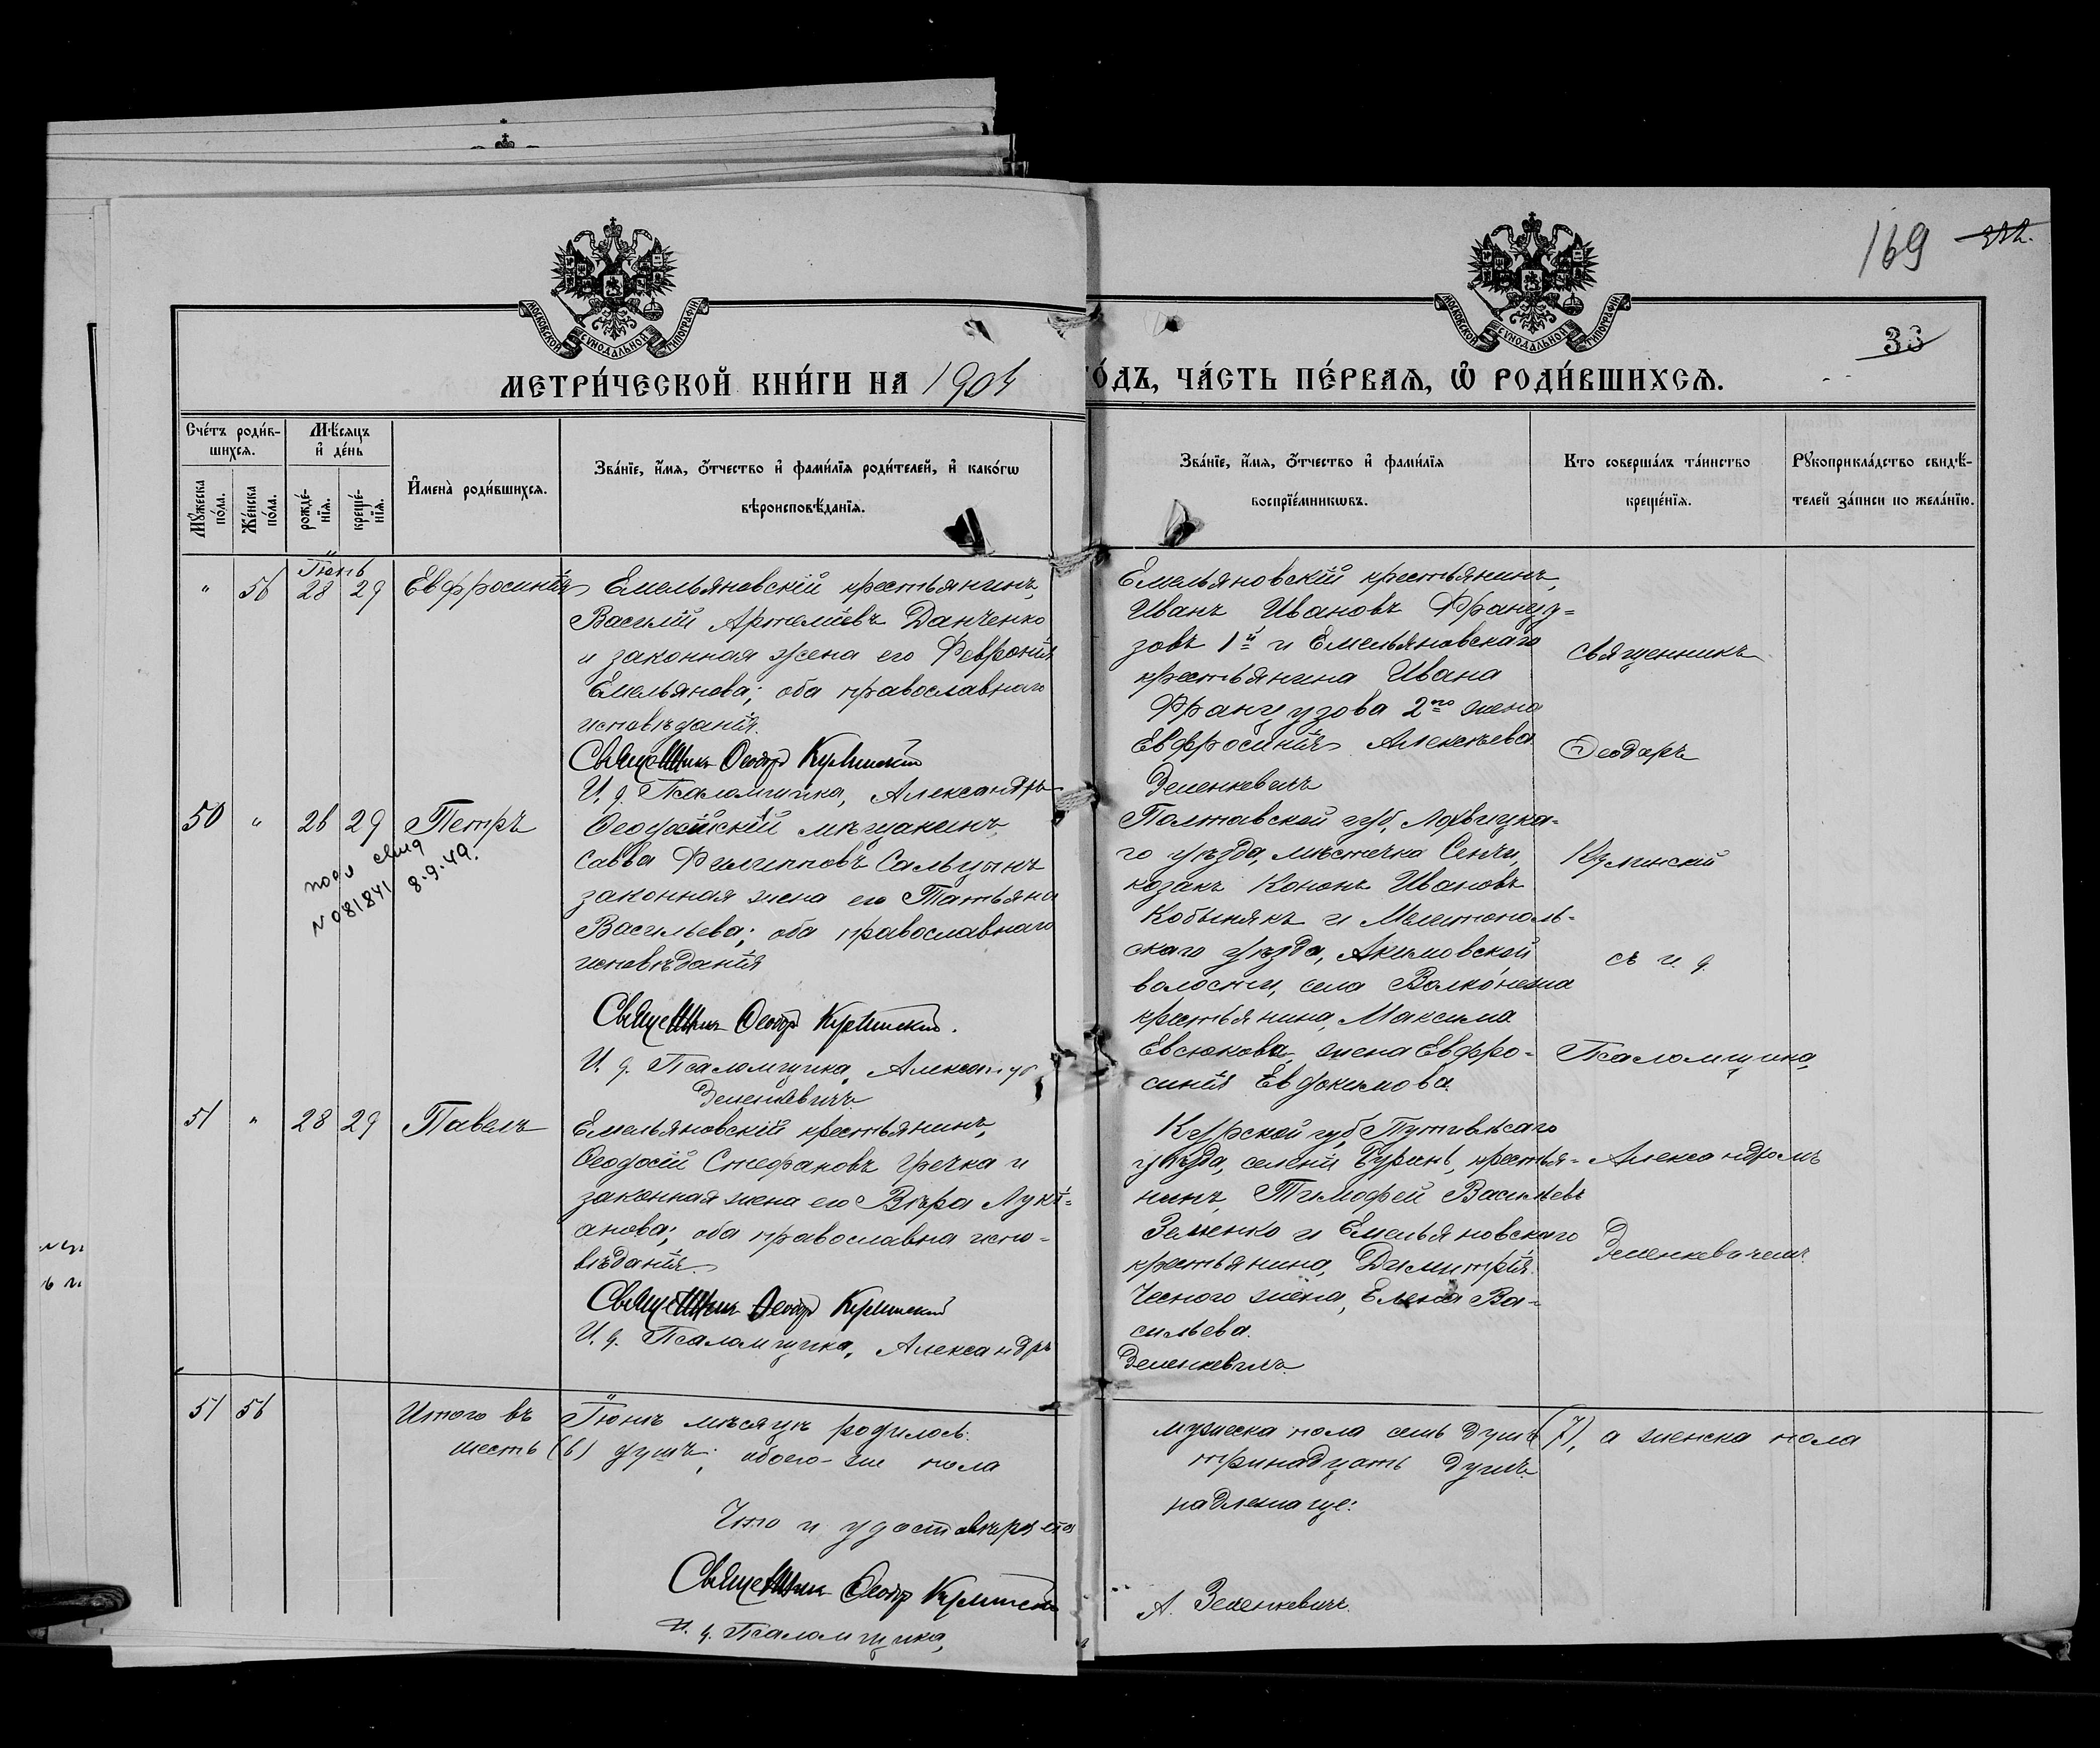 169 322.
33
МОСКОВСКОЙ СѴНОДАЛЬНОЙ ТИПОГРАФІИ
МОСКОВСКОЙ СѴНОДАЛЬНОЙ ТИПОГРАФІИ
МЕТРИ́ЧЕСКОЙ КНИ́ГИ НА 1904
ГО́ДЪ, ЧА́СТЬ ПЕ́РВАѦ, Ѽ РОДИ́ВШИХСѦ.
Сче́тъ роди́в-
шихсѧ.
Мѣ́сѧцъ
и҆ де́нь
Мꙋ́жеска
по́ла.
Же́нска
по́ла.
рожде́-
нїѧ.
креще́-
нїѧ.
И҆мена̀ роди́вшихсѧ.
Зва́нїе, и҆́мѧ, о҆́тчество и҆ фами́лїѧ роди́телей, и҆ како́гѡ
вѣроисповѣ́данїѧ.
Зва́нїе, и҆́мѧ, о҆́тчество и҆ фами́лїѧ
воспрїе́мникѡвъ.
Кто соверша́лъ та́инство
креще́нїѧ.
Рꙋкоприкла́дство свидѣ́-
телей за́писи по жела́нїю.
Іюнь
" 56 28 29 Евфросинія
Емельяновскій крестьянинъ,
Василій Артеміевъ Данченко
и законная жена его Февронія
Емельянова; оба православнаго
исповѣданія.
Священникъ Ѳеодоръ Кулинскій
И. д. Псаломщика, Александръ
Емельяновскій крестьянинъ,
Иванъ Ивановъ Француз=
зовъ 1й и Емельяновскаго
крестьянина Ивана
Французова 2го жена
Евфросинія Алексѣева
Зеленкевичъ
50 " 26 29 Петръ
N 081841 8.9.49.
Ѳеодосійскій мѣщанинъ,
Савва Филипповъ Сальцынъ
законная жена его Татьяна
Васильева; оба православнаго
исповѣданія
Священникъ Ѳеодоръ Кулинскій.
И. д. Псаломщика, Александръ
Зеленкевичъ
Полтавской губ, Лохвицка=
го уѣзда, мѣстечка Сенчи,
козакъ Кононъ Ивановъ
Кобылякъ и Мелитополь-
скаго уѣзда, Акимовской
волости, села Волконешна
крестьянина, Максима
Евсюкова, жена Евфро-
синія Евдокимова.
51 " 28 29 Павелъ
Емельяновскій крестьянинъ,
Ѳеодосій Стефановъ Гречка и
законная жена его Вѣра Лукі=
анова; оба православна испо-
вѣданія.
Священникъ Ѳеодоръ Кулинскій
И. д. Псаломщика, Александръ
Курской губ, Путивльсаго
уѣзда, селенія Бурынь, крестья-
нинъ, Тимофей Васильевъ
Зеленко и Емельяновскаго
крестьянина, Димитрія
Чесного жена, Елена Ва-
сильева.
Зеленкевичъ.
Священникъ
Ѳеодоръ
Кулинскій
съ и. д.
Псаломщика,
Александромъ
Зеленкевичемъ.
51 56 Итого въ Іюнѣ мѣсяцѣ родилось: мужеска пола семь душъ (7), а женска пола
шесть (6) душъ; обоего-же пола тринадцать душъ.
Что и удостовѣряется надлежаще:
Священникъ Ѳеодоръ Кулинскій
И. д. Псаломщика, А. Зеленкевичъ.